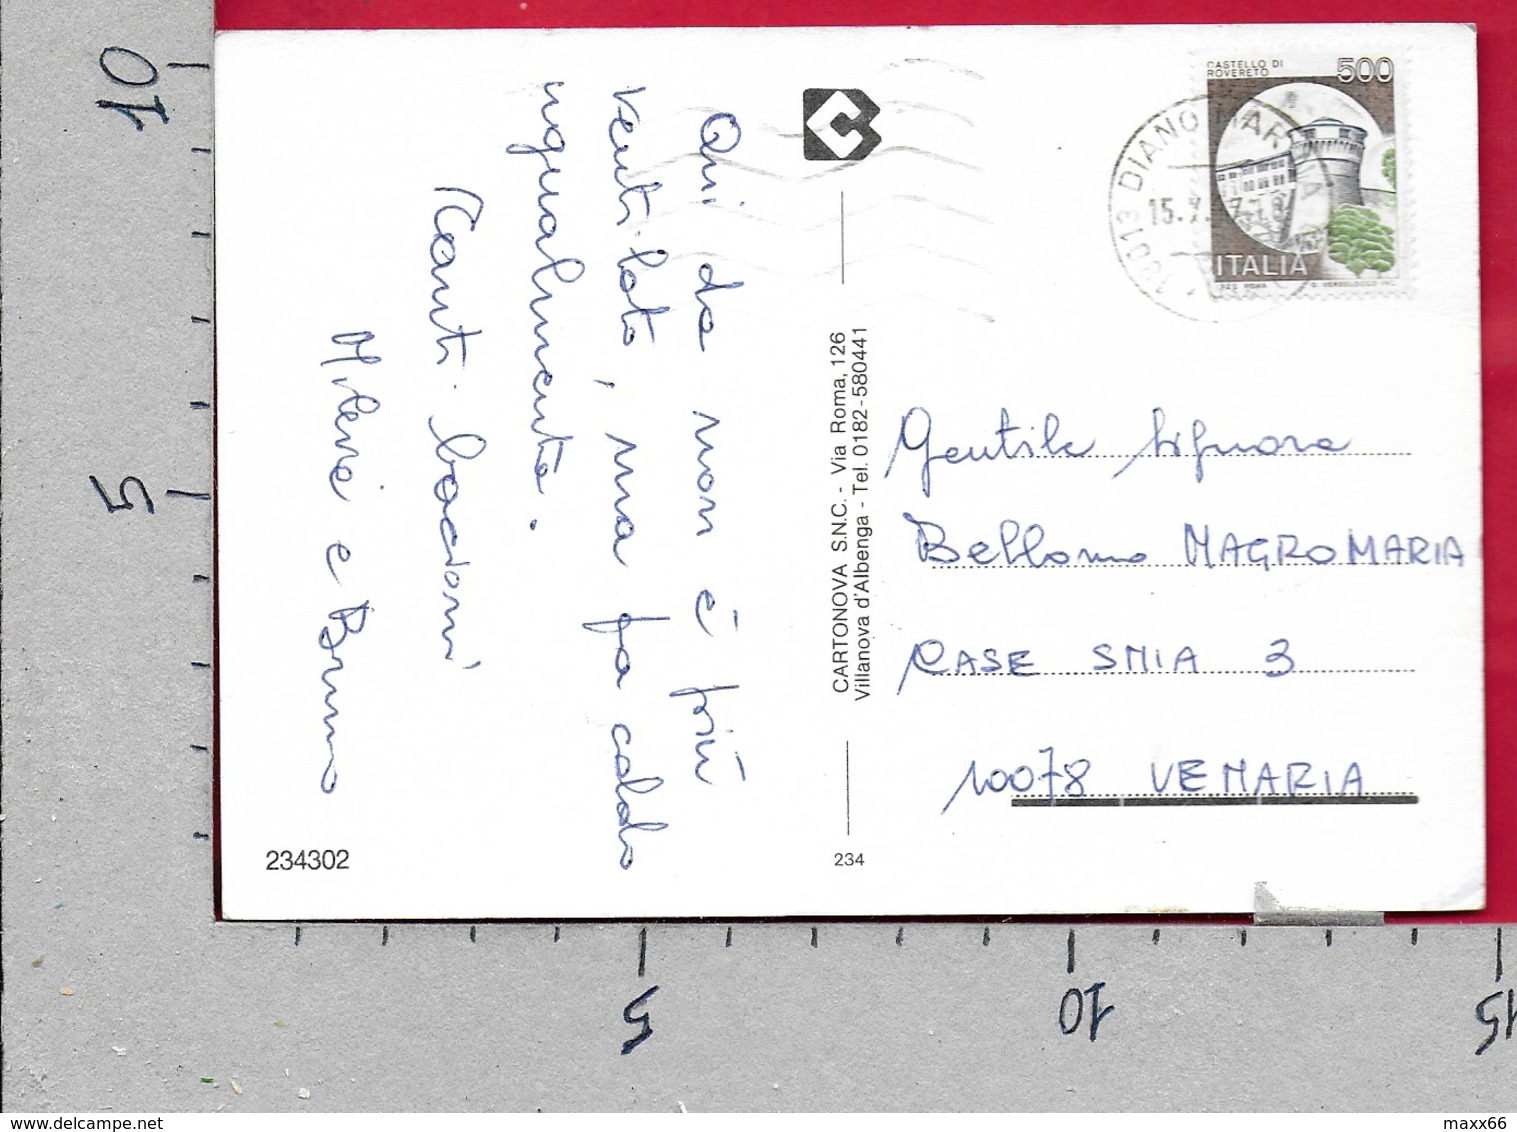 10
5
5
10
15
Qui da noi è più
ventilato, ma fa caldo
ugualmente.
Tanti bacioni
Milena e Bruno
234302
CARTONOVA S.N.C. - Via Roma, 126
Villanova d'Albenga - Tel. 0182-580441
234
CASTELLO DI
ROVERETO
500
ITALIA
I.P.Z.S. ROMA
18013 DIANO MARINA
15.
Gentile Signora
Bellomo MAGRO MARIA
CASE SNIA 3
10078 VENARIA
www.delcampe.net
maxx66